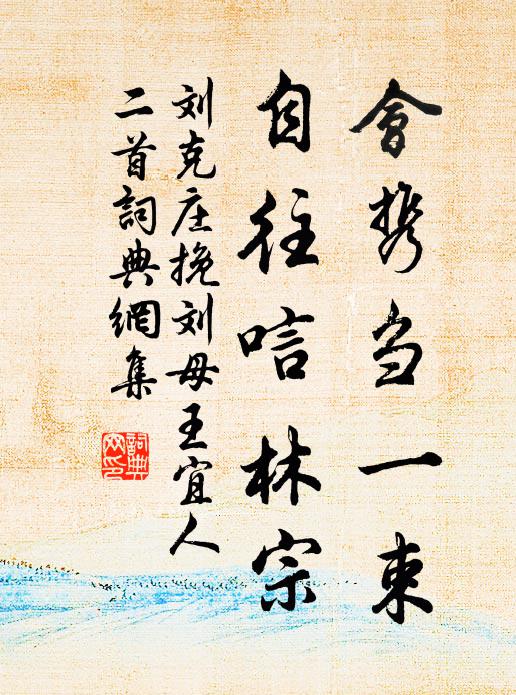 會携刍一束
自往唁林宗
刘克庄挽刘母王宜人
二首詞典網集
詞典
网印